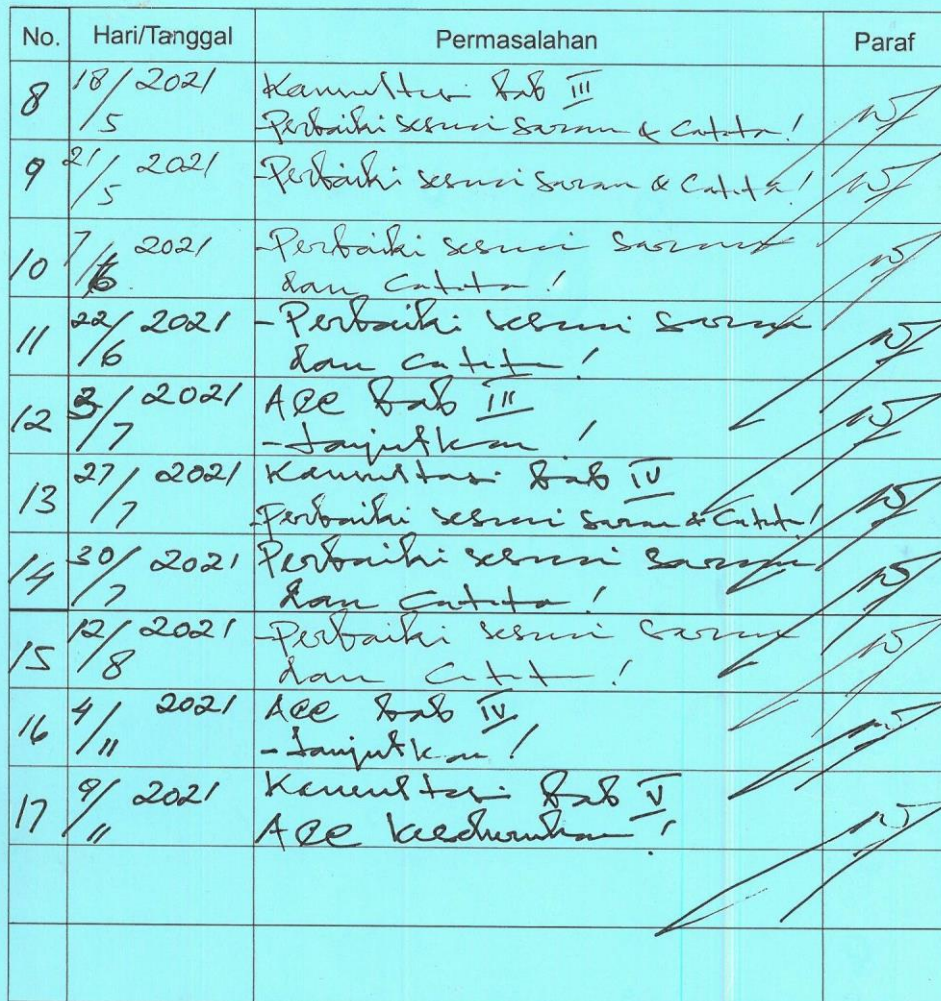 No. Hari/Tanggal Permasalahan Paraf
8 18/5 2021 Konsultasi Bab III
- Perbaiki sesuai saran & catatan!
9 21/5 2021 - Perbaiki sesuai saran & catatan!
10 7/6 2021 - Perbaiki sesuai saran
dan catatan!
11 22/6 2021 - Perbaiki sesuai saran
dan catatan!
12 3/7 2021 Acc Bab III
- Lanjutkan!
13 27/7 2021 Konsultasi Bab IV
- Perbaiki sesuai saran & catatan!
14 30/7 2021 Perbaiki sesuai saran
dan catatan!
15 12/8 2021 - Perbaiki sesuai saran
dan catatan!
16 4/11 2021 Acc Bab IV
- Lanjutkan!
17 9/11 2021 Konsultasi Bab V
Acc keseluruhan!